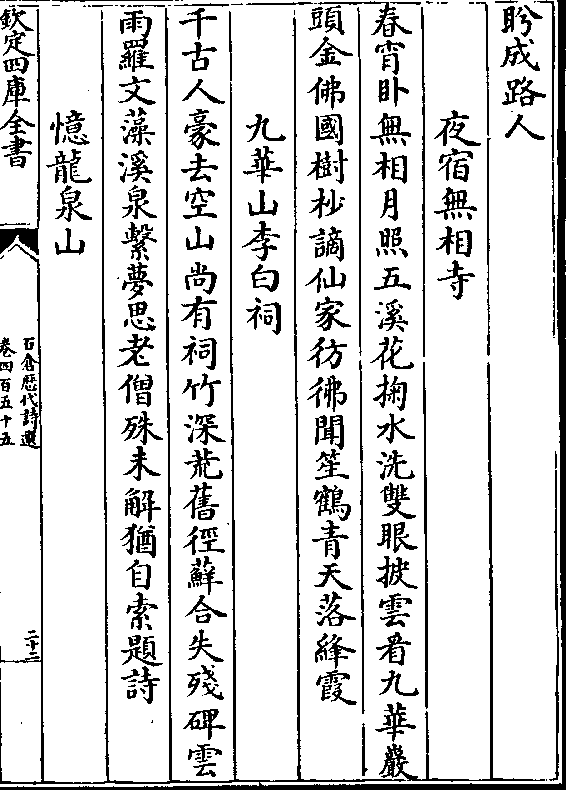 盻成路人
夜宿無相寺
春宵卧無相月照五溪花掬水洗雙眼披雲看九華巖
頭金佛國樹杪謫仙家彷彿聞笙鶴青天落絳霞
九華山李白祠
千古人豪去空山尚有祠竹深荒舊徑蘚合失殘碑雲
雨羅文藻溪泉繫夢思老僧殊未解猶自索題詩
憶龍泉山
欽定四庫全書
石倉歴代詩選
卷四百五十五
二十二